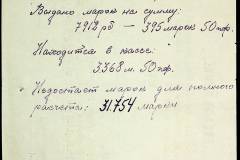 Выдано марок на сумму:
7912 рб — 395 марок 50 пф.
Находится в кассе:
3368 м. 50 пф.
Недостает марок для полного
расчета: 31.754 марки